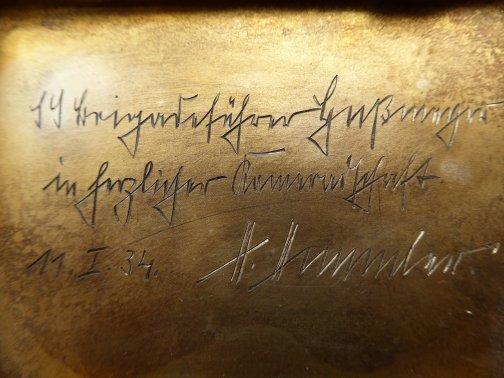 SS Brigadeführer Heißmeyer
in herzlicher Kameradschaft.
11.I.34. H. Himmler.